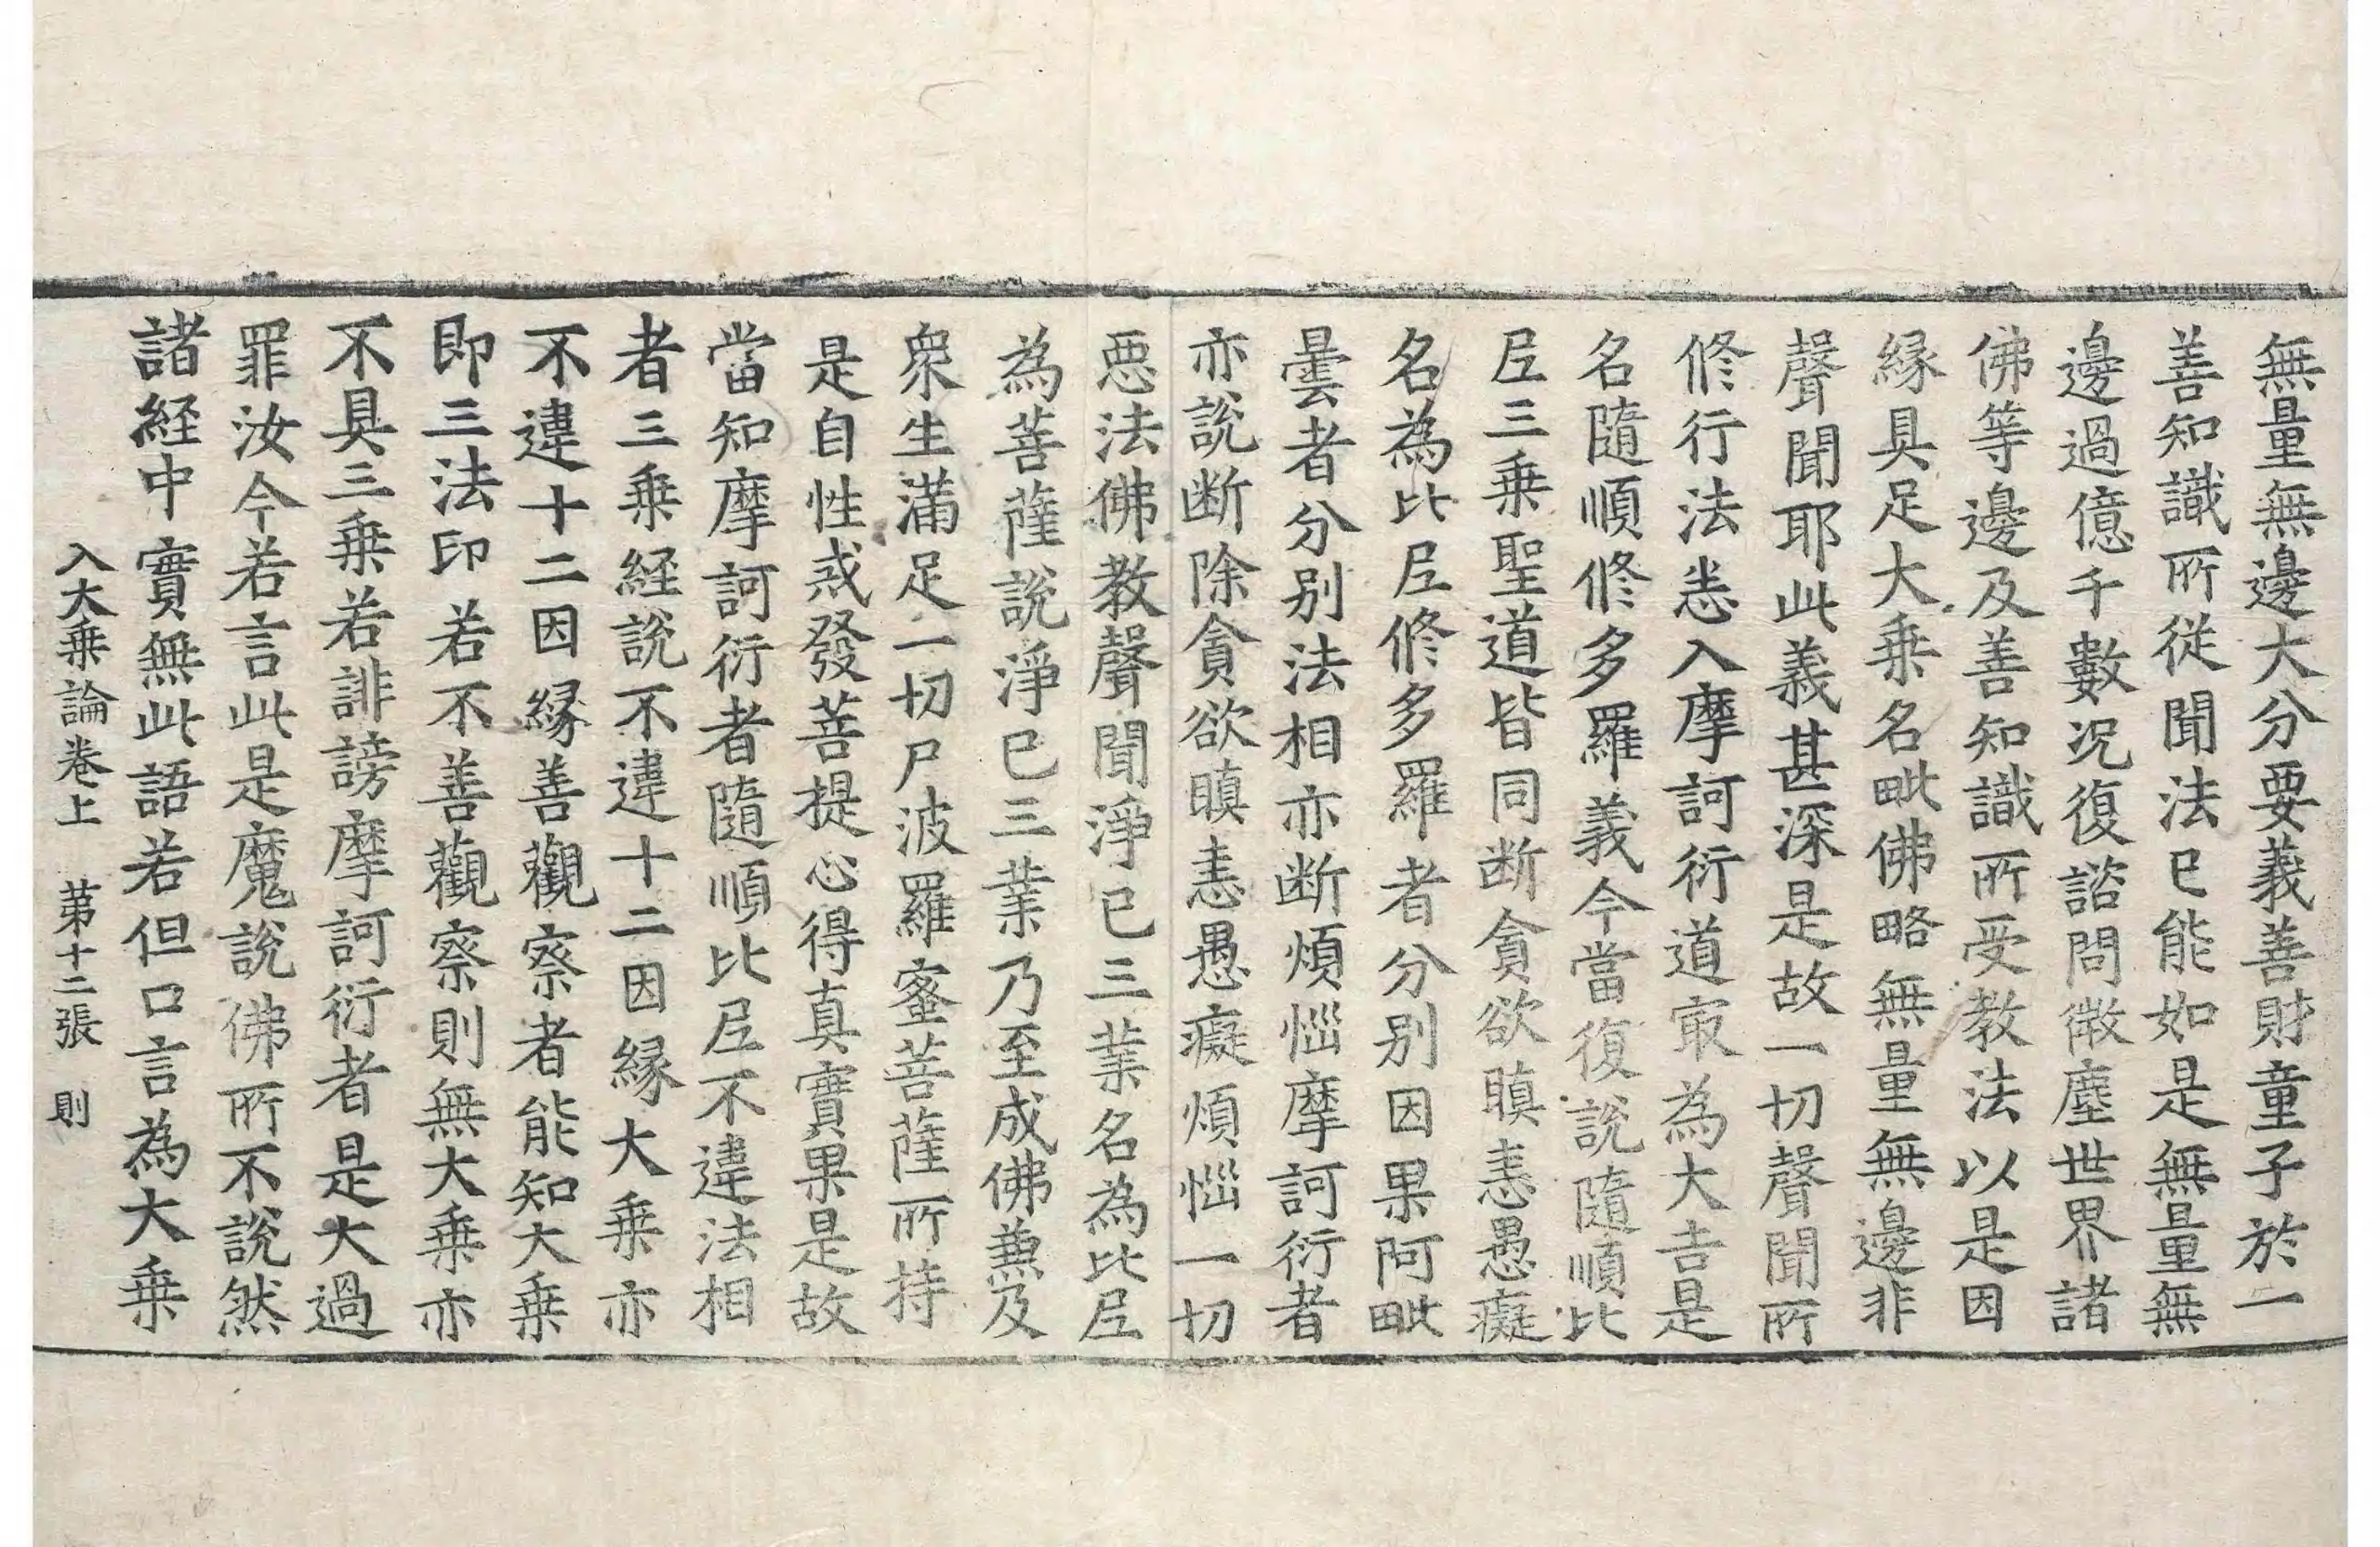 無量無邊大分要義善財童子於一
善知識所從聞法已能如是無量無
邊過億千數况復諮問微塵世界諸
佛等邊及善知識所受教法以是因
縁具足大乗名毗佛略無量無邊非
聲聞耶此義甚深是故一切聲聞所
修行法恚入摩訶衍道㝡為大吉是
名隨順修多羅義今當復說隨順比
𡰱三乗聖道皆同断貪欲瞋恚愚癡
名為比𡰱修多羅者分別因果阿毗
曇者分別法相亦断煩惱摩訶衍者
亦說断除貪欲瞋恚愚癡煩惱一切
惡法佛教聲聞淨已三業名為比𡰱
為菩薩說淨已三業乃至成佛兼及
衆生滿足一切尸波羅蜜菩薩所持
是自性戒發菩提心得真實果是故
當知摩訶衍者隨順比𡰱不違法相
者三乗経說不違十二因縁大乗亦
不違十二因縁善觀察者能知大乗
即三法印若不善觀察則無大乗亦
不具三乗若誹謗摩訶衍者是大過
罪汝今若言此是魔說佛所不說然
諸経中實無此語若但口言為大乗
入大乗論卷上 苐十二張 則